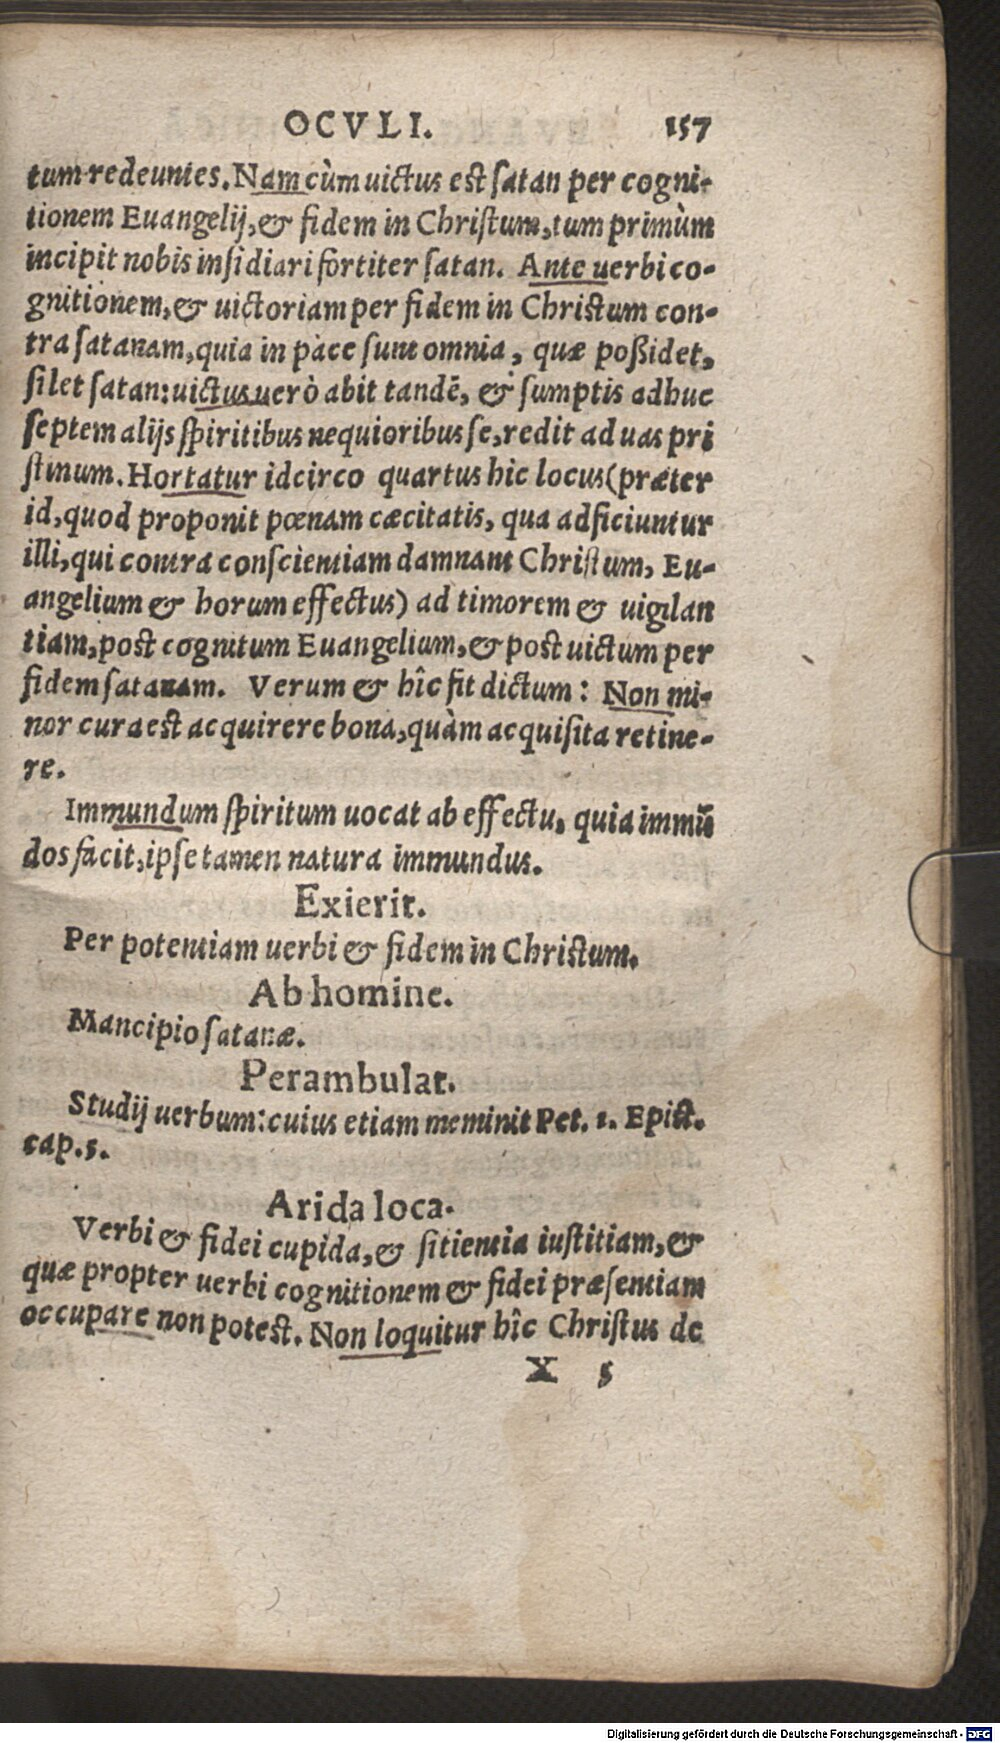 OCVLI. 157
tum redeuntes. Nam cùm uictus est ſatan per cogni-
tionem Euangelij, & fidem in Chriſtum, tum primùm
incipit nobis inſidiari fortiter ſatan. Ante uerbi co-
gnitionem, & uictoriam per fidem in Christum con-
tra ſatanam, quia in pace ſunt omnia, quæ poßidet,
ſilet ſatan: uictus uerò abit tandẽ, & ſumptis adhuc
ſeptem alijs ſpiritibus nequioribus ſe, redit ad uas pri
ſtinum. Hortatur idcirco quartus hic locus (præter
id, quod proponit pœnam cæcitatis, qua adficiuntur
illi, qui contra conſcientiam damnant Chriſtum, Eu-
angelium & horum effectus) ad timorem & uigilan
tiam, post cognitum Euangelium, & post uictum per
fidem ſatanam. Verum & hîc fit dictum: Non mi-
nor cura est acquirere bona, quàm acquiſita retine-
re.
Immundum ſpiritum uocat ab effectu, quia immũ
dos facit, ipſe tamen natura immundus.
Exierit.
Per potentiam uerbi & fidem in Christum.
Ab homine.
Mancipio ſatanæ.
Perambulat.
Studij uerbum: cuius etiam meminit Pet. 1. Epist.
cap. 5.
Arida loca.
Verbi & fidei cupida, & ſitientia iuſtitiam, &
quæ propter uerbi cognitionem & fidei præſentiam
occupare non potest. Non loquitur hîc Chriſtus de
X 5
Digitalisierung gefördert durch die Deutsche Forschungsgemeinschaft - DFG